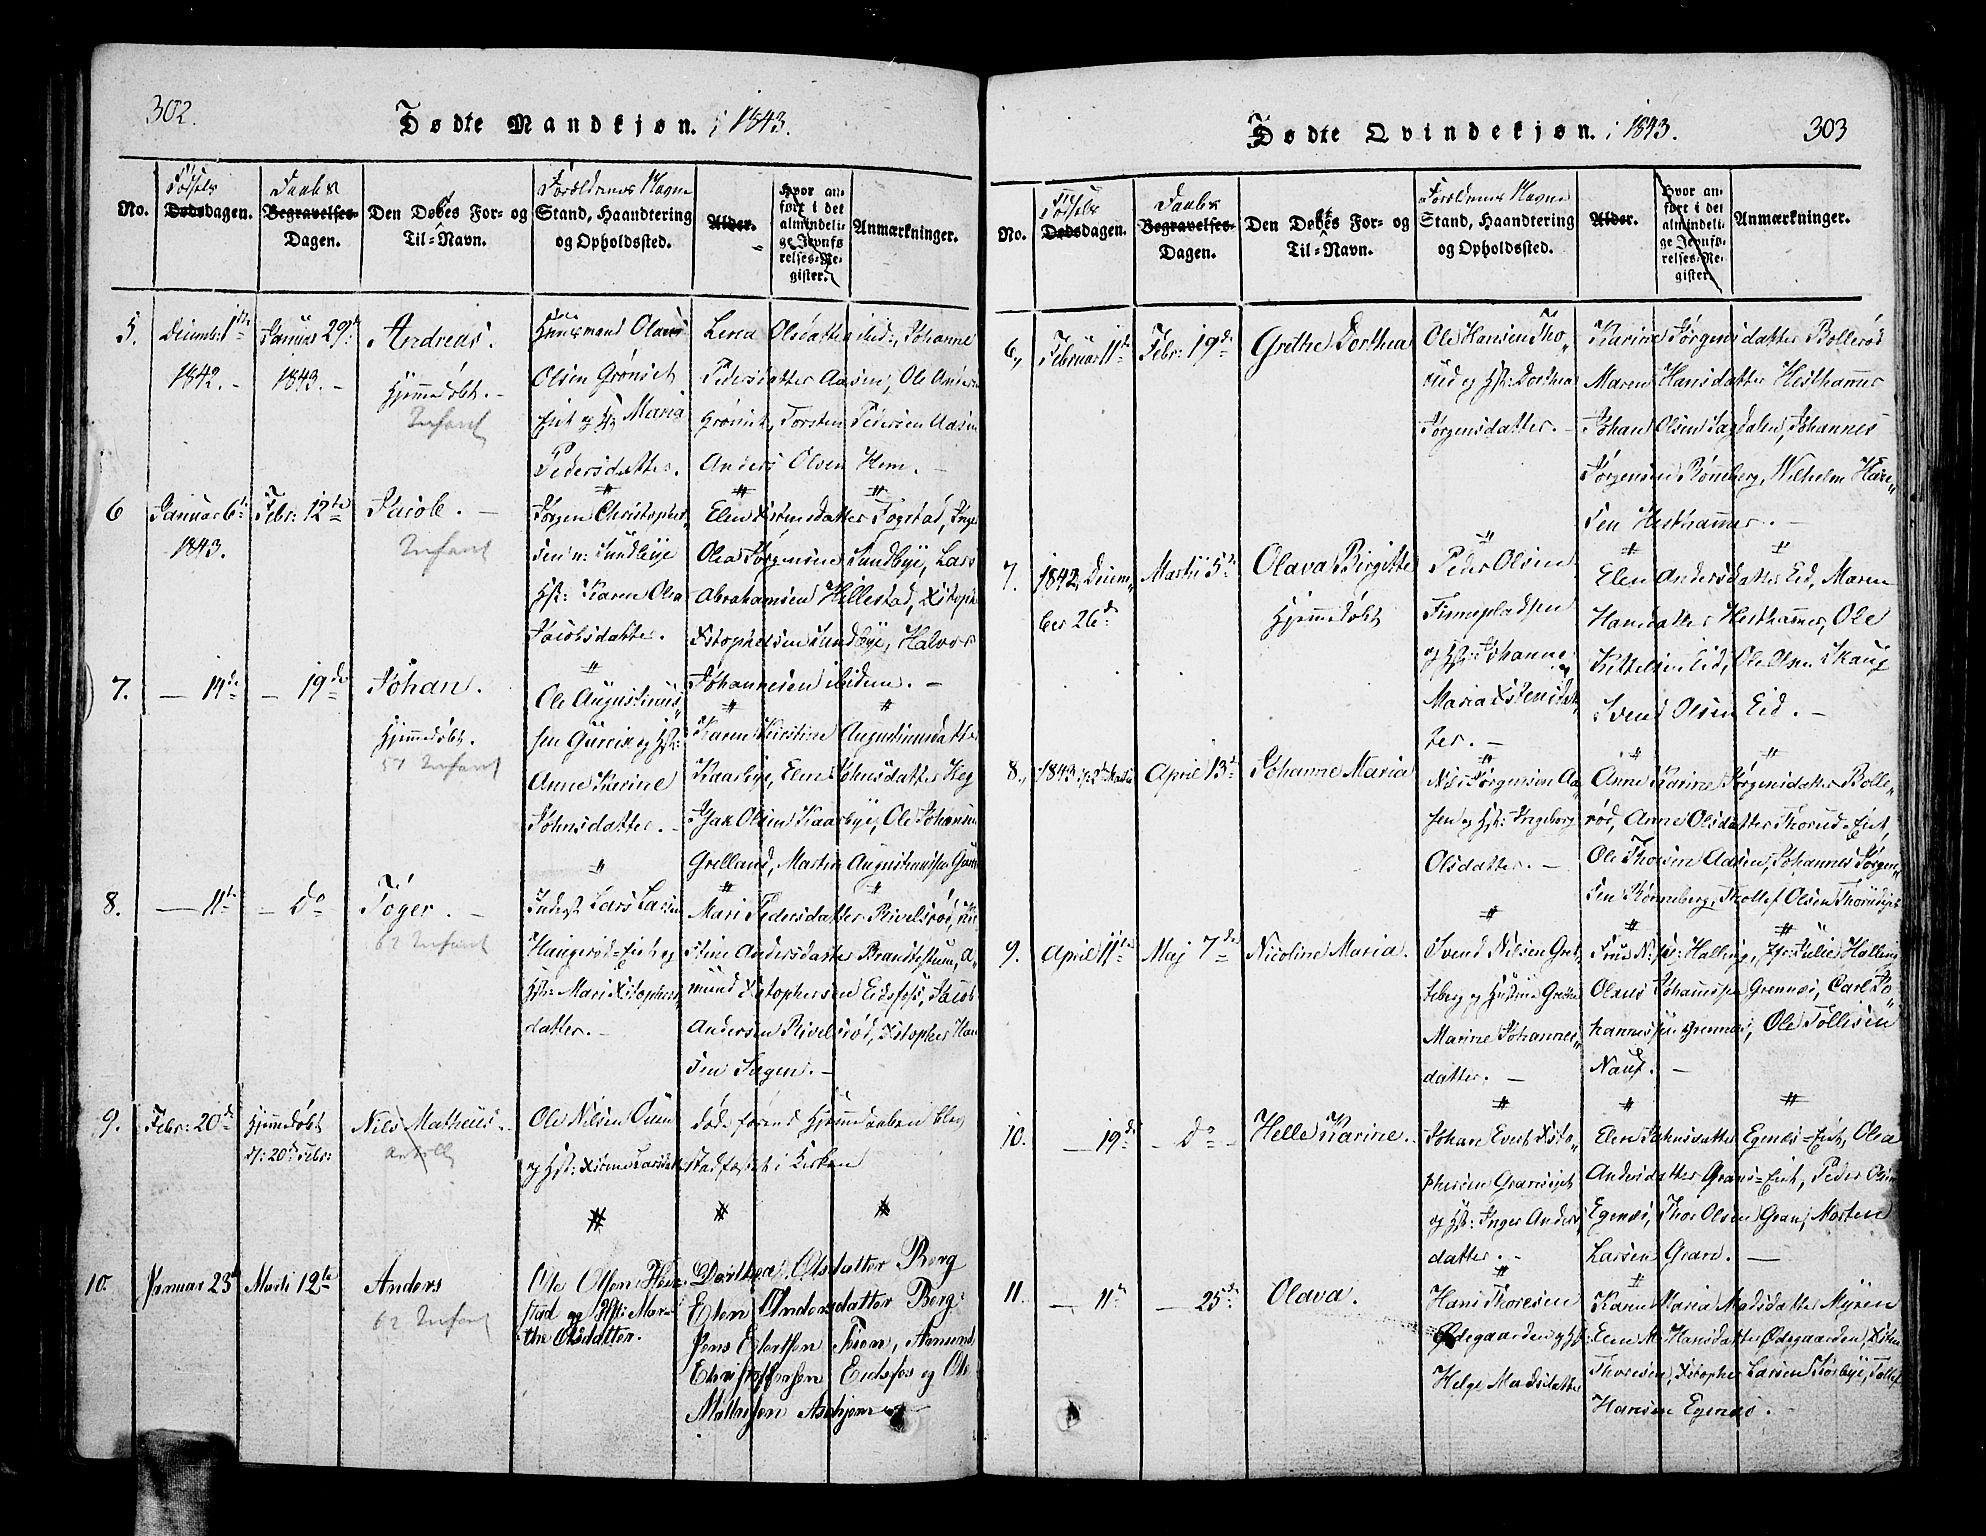 302.
Dødte Mandkjøn. i 1843.
No.
Fødsels
Dødsdagen.
Daabs
Begravelses-
Dagen.
Den Døbtes For- og
Til-Navn.
Forældrenes Navne
Stand, Haandtering
og Opholdssted.
Alder.
Hvor an-
ført i det
almindeli-
ge Jevnfø-
relses-Re-
gister.
Anmærkninger.
5.
Decembr: 1ste
1842.-
Januar 29de
1843.-
Andreas.
Hjemmedøbt.-
Infant
Huusmand Olaus
Olsen Grønset
Eiet og H: Maria
Pedersdatter.
Lerea Olsdatter ibid:, Johanne
Pedersdatter Aasen, Ole Anders
Grønset, Torsten Pedersen Aasen
Anders Olsen Hem.-
6
Januar 6te
1843.
Febr: 12te
Jacob.-
Infant
Jørgen Christopher
sen n: Sundbye
Hst: Karen Olea
Jacobsdatter.
Elen Xstensdatter Fogstad, Inge
Olea Jørgensen Sundbye, Lars
Abrahamsen Hillestad, Xstopher
Xstophersen Sundbye, Halvor
Johannesen ibidem.-
7.
- 14de
- 19de
Johan.
Hjemmedøbt.
Infant
Ole Augustinus-
sen Gurrix og Hst:
Anne Karine
Johnsdatter.-
Karen Kirstine Augustinusdatter
Kaarbye, Elene Johnsdatter Heg
Isak Olsen Kaarbye, Ole Johannes
Grelland, Martin Augustinussen
8.
- 11te
- Do
Tøger.-
62 Infant
Inderst Lars Larsen
Haugerød-Eiet og
Hst: Mari Xstophers-
datter.-
Mari Pedersdatter Rivelsrød,
Stine Andersdatter Brandtestuen, A-
mund Xstophersen Eidsfos, Jacob
Andersen Rivelsrød, Xstopher Han
sen Sagen.-
9.
Febr: 20de
Hjemmedøbt
d: 20de Febr:
Nils Matheus.
Ole Nilsen
og Hst:
døde førend Hjemmedaaben blev
stadfæstet i Kirken
10.
Januar 23de
Marti 12te
Anders
62 Infant
Ole Olsen
stad og Hst: Mar-
the Olsdatter.
Dorthea Olsdatter Berg
Elen Andersdatter Berg
Jens Ellertsen Teien, Amund
Christophersen Eidsfos og Ole
Mathisen Askjem

303
Dødte Qvindekjøn. i 1843.
No.
Fødsels
Dødsdagen.
Daabs
Begravelses-
Dagen.
Den Døbtes For- og
Til-Navn.
Forældrenes Navne
Stand, Haandtering
og Opholdssted.
Alder.
Hvor an-
ført i det
almindeli-
ge Jevnfø-
relses-Re-
gister.
Anmærkninger.
6.,
Februar 11te
Febr: 19de
Grethe Dorthea
Ole Hansen Tho-
rud og Hst: Dorthea
Jørgensdatter.-
Karine Jørgensdatter Bollerød
Maren Hansdatter Hesthammer
Johan Olsen Sagdalen, Johannes
Jørgensen Rønneberg, Wilhelm Han-
sen Hesthammer.-
7.
1842, Decem-
ber 26de
Martii 5te
Olava Birgitte
Hjemmedøbt
Peder Olsen
Finnepladsen
og Hst: Johanne
Maria Xstensdat-
ter.-
Elen Andersdatter Eid, Maren
Hansdatter Hesthammer, Ole
Kittelsen Eid, Ole Olsen Skaug
Svend Olsen Eid.-
8.,
1843
April 13de
Johanne Maria
Nils Jørgensen Aa-
sen og Hst: Ingeborg
Olsdatter.-
Anne Karine Jørgensdatter Bolle-
rød, Anne Olsdatter Thorud-Eiet,
Ole Thorsen Aasen, Johannes Jørgen-
sen Rønneberg, Thollef Olsen Thorudeiet
9.
April 11te
Maj 7de
Nicoline Maria.
Svend Nilsen Gret-
teberg og Hustrue Grethe
Marine Johannes-
datter.-
Frue Halling, Julie Halling
Olaus Johannessen Grennes, Carl Jo-
hannessen Grennes, Ole Tollesen
Nauf.-
10.
- 19de
- Do -
Helle Karine.
Johan Evert Xsto-
phersen Granseiet
og Hst: Inger Anders-
datter.-
Elen Johnsdatter Egenes-Eiet, Olea
Andersdatter Grans-Eiet, Peder Olsen
Egenes, Thor Olsen Gran, Morten
Larsen Gran.-
11.
- 11te
- 25de
Olava.
Hans Thoresen
Ødegaarden og Hst:
Helge Madsdatter
Karen Maria Madsdatter Myren
Elen M. Hansdatter Ødegaarden, Xsten
Thoresen, Xstopher Larsen Thorbye, Tollef
Hansen Egenes.-